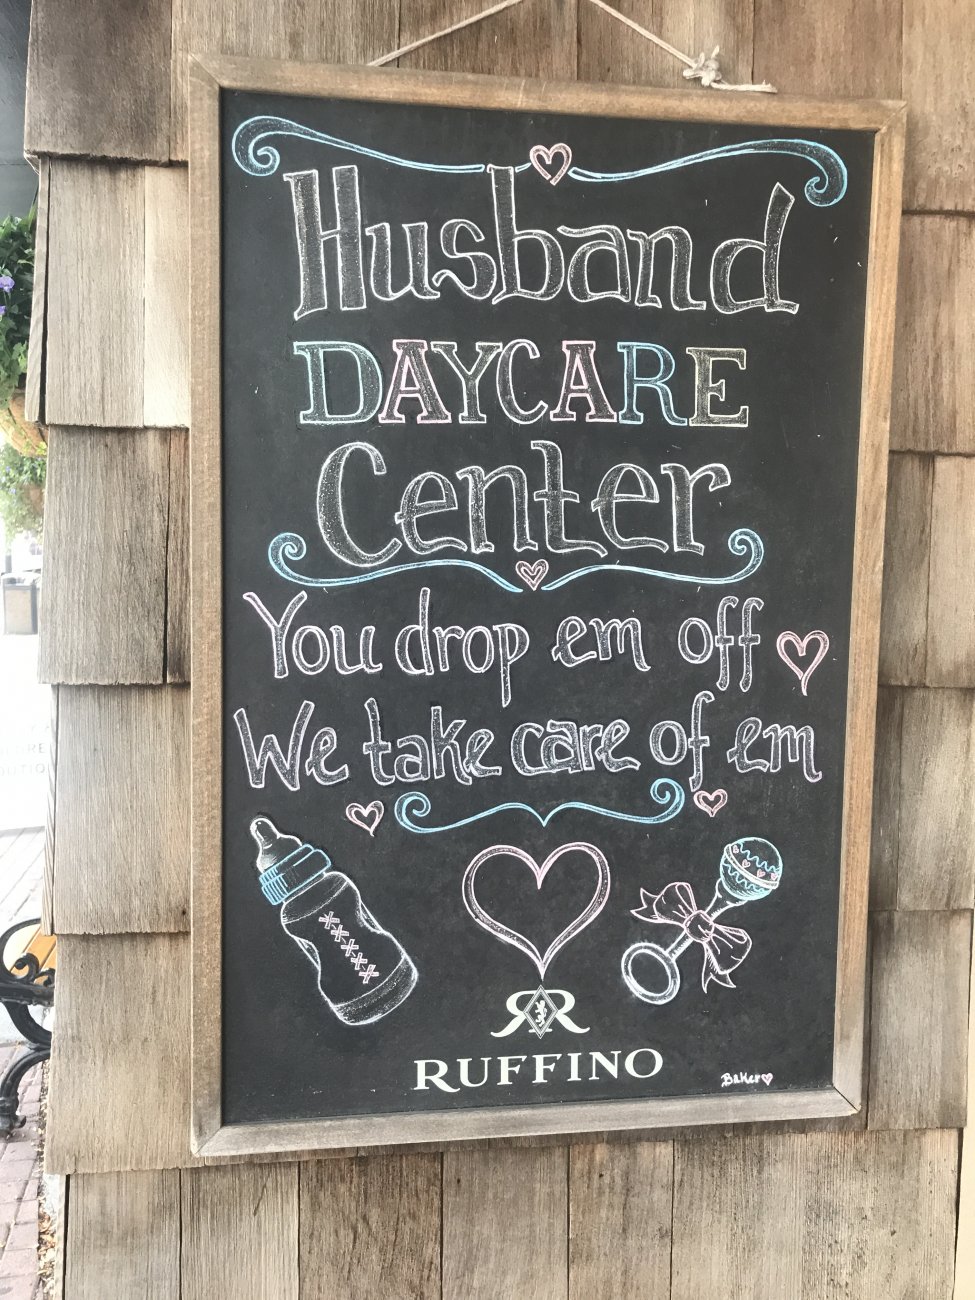 Husband
DAYCARE
Center
You drop em off
We take care of em
XXXXX
RUFFINO
Baker